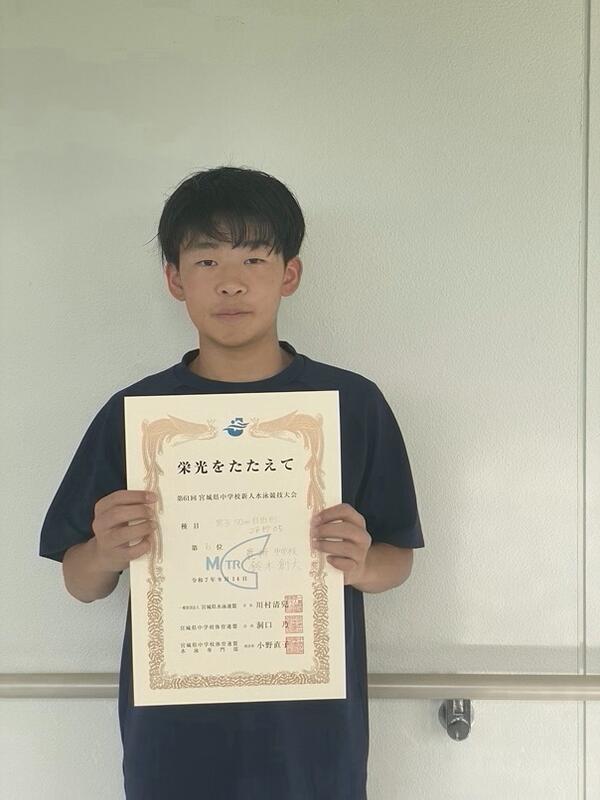 栄光をたたえて
第61回 宮城県中学校新人水泳競技大会
種目 男子 50m 自由形
第 位
M TR 中学校
鈴木創大
令和7年9月14日
一般財団法人 宮城県水泳連盟 会長 川村清
宮城県中学校体育連盟 会長 洞口 乃
宮城県中学校体育連盟
水泳専門部 小野直子